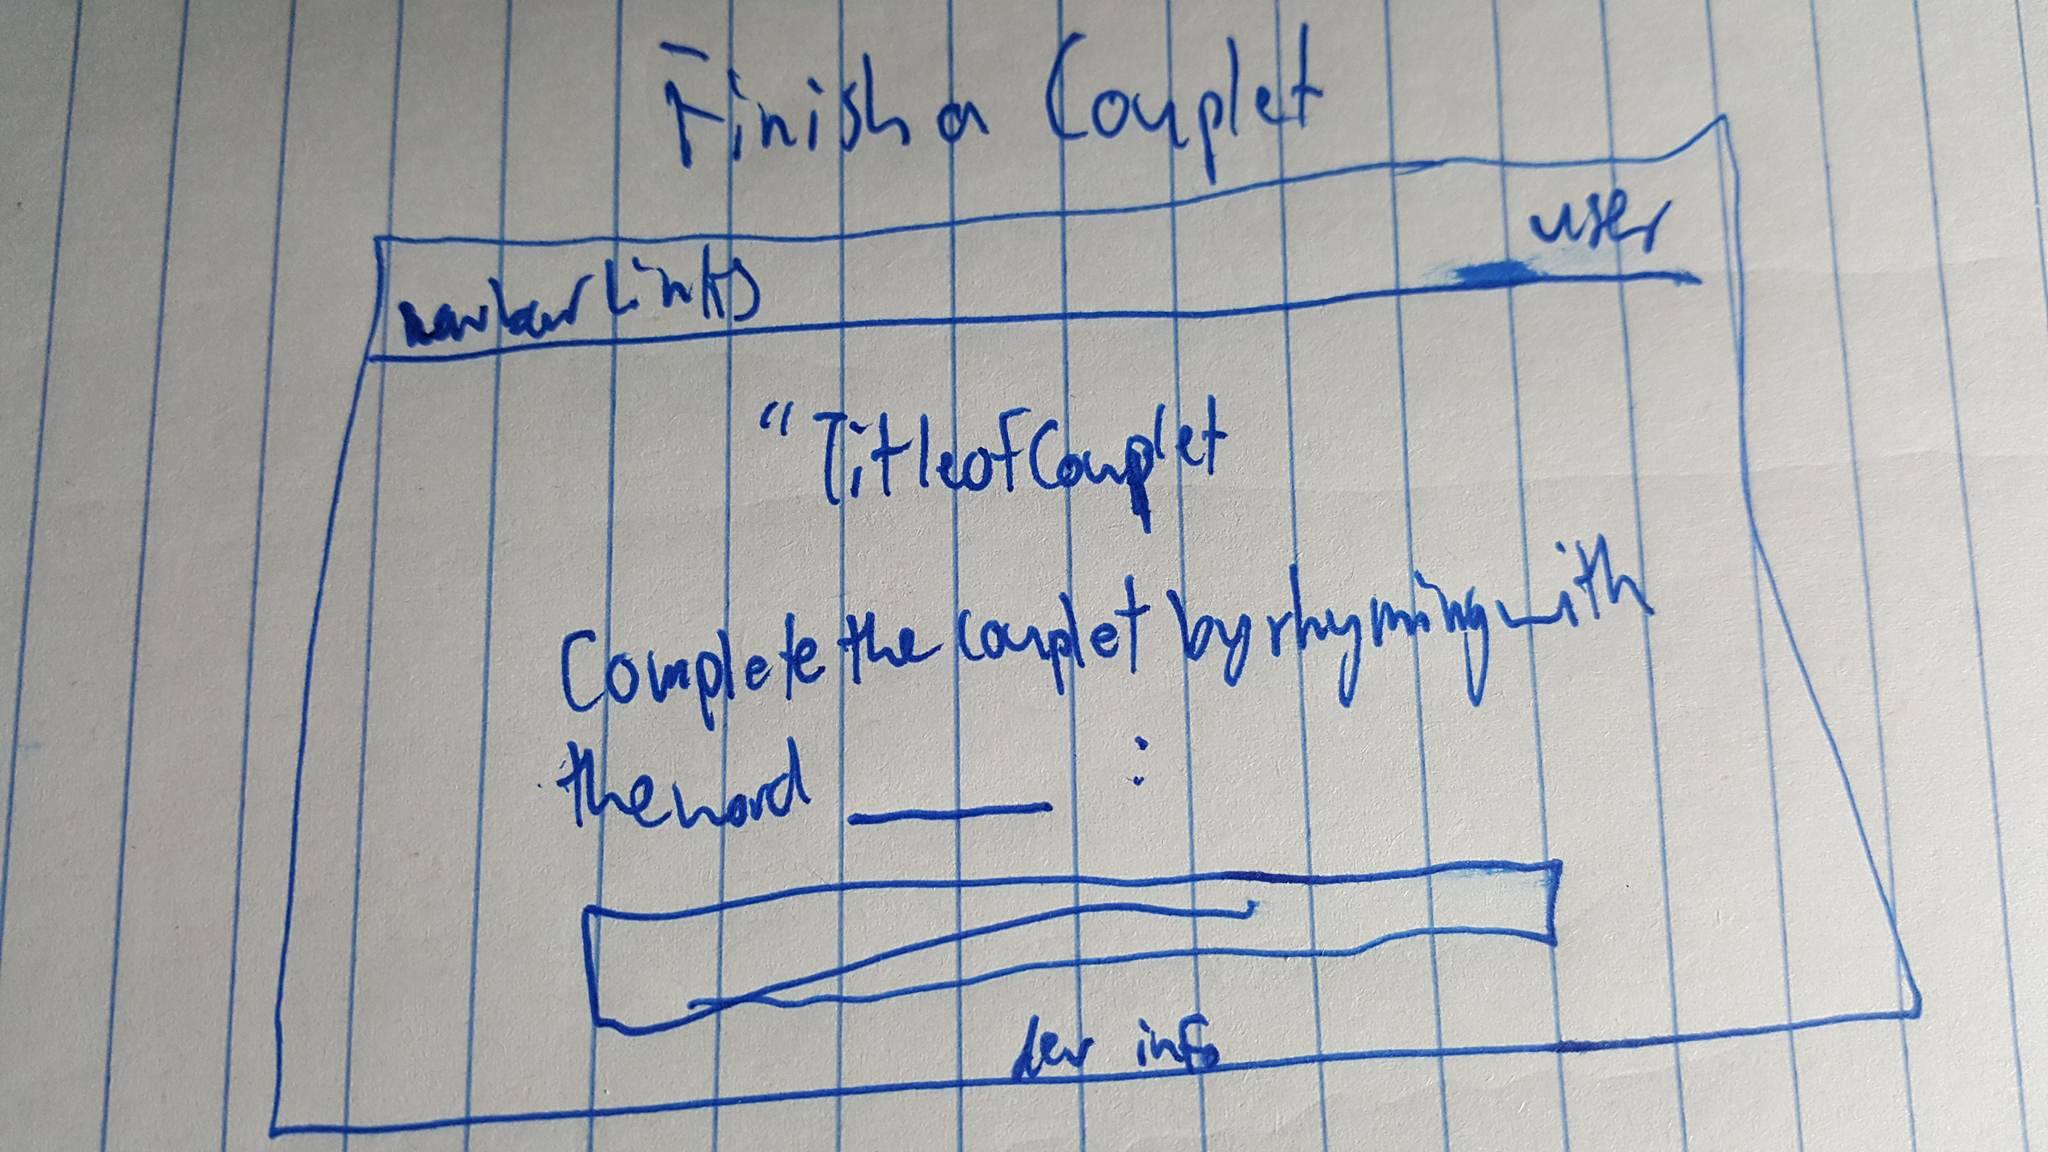 Finish a Couplet
navbar links
user
"Title of Couplet
Complete the couplet by rhyming with
the word ____ :
dev info